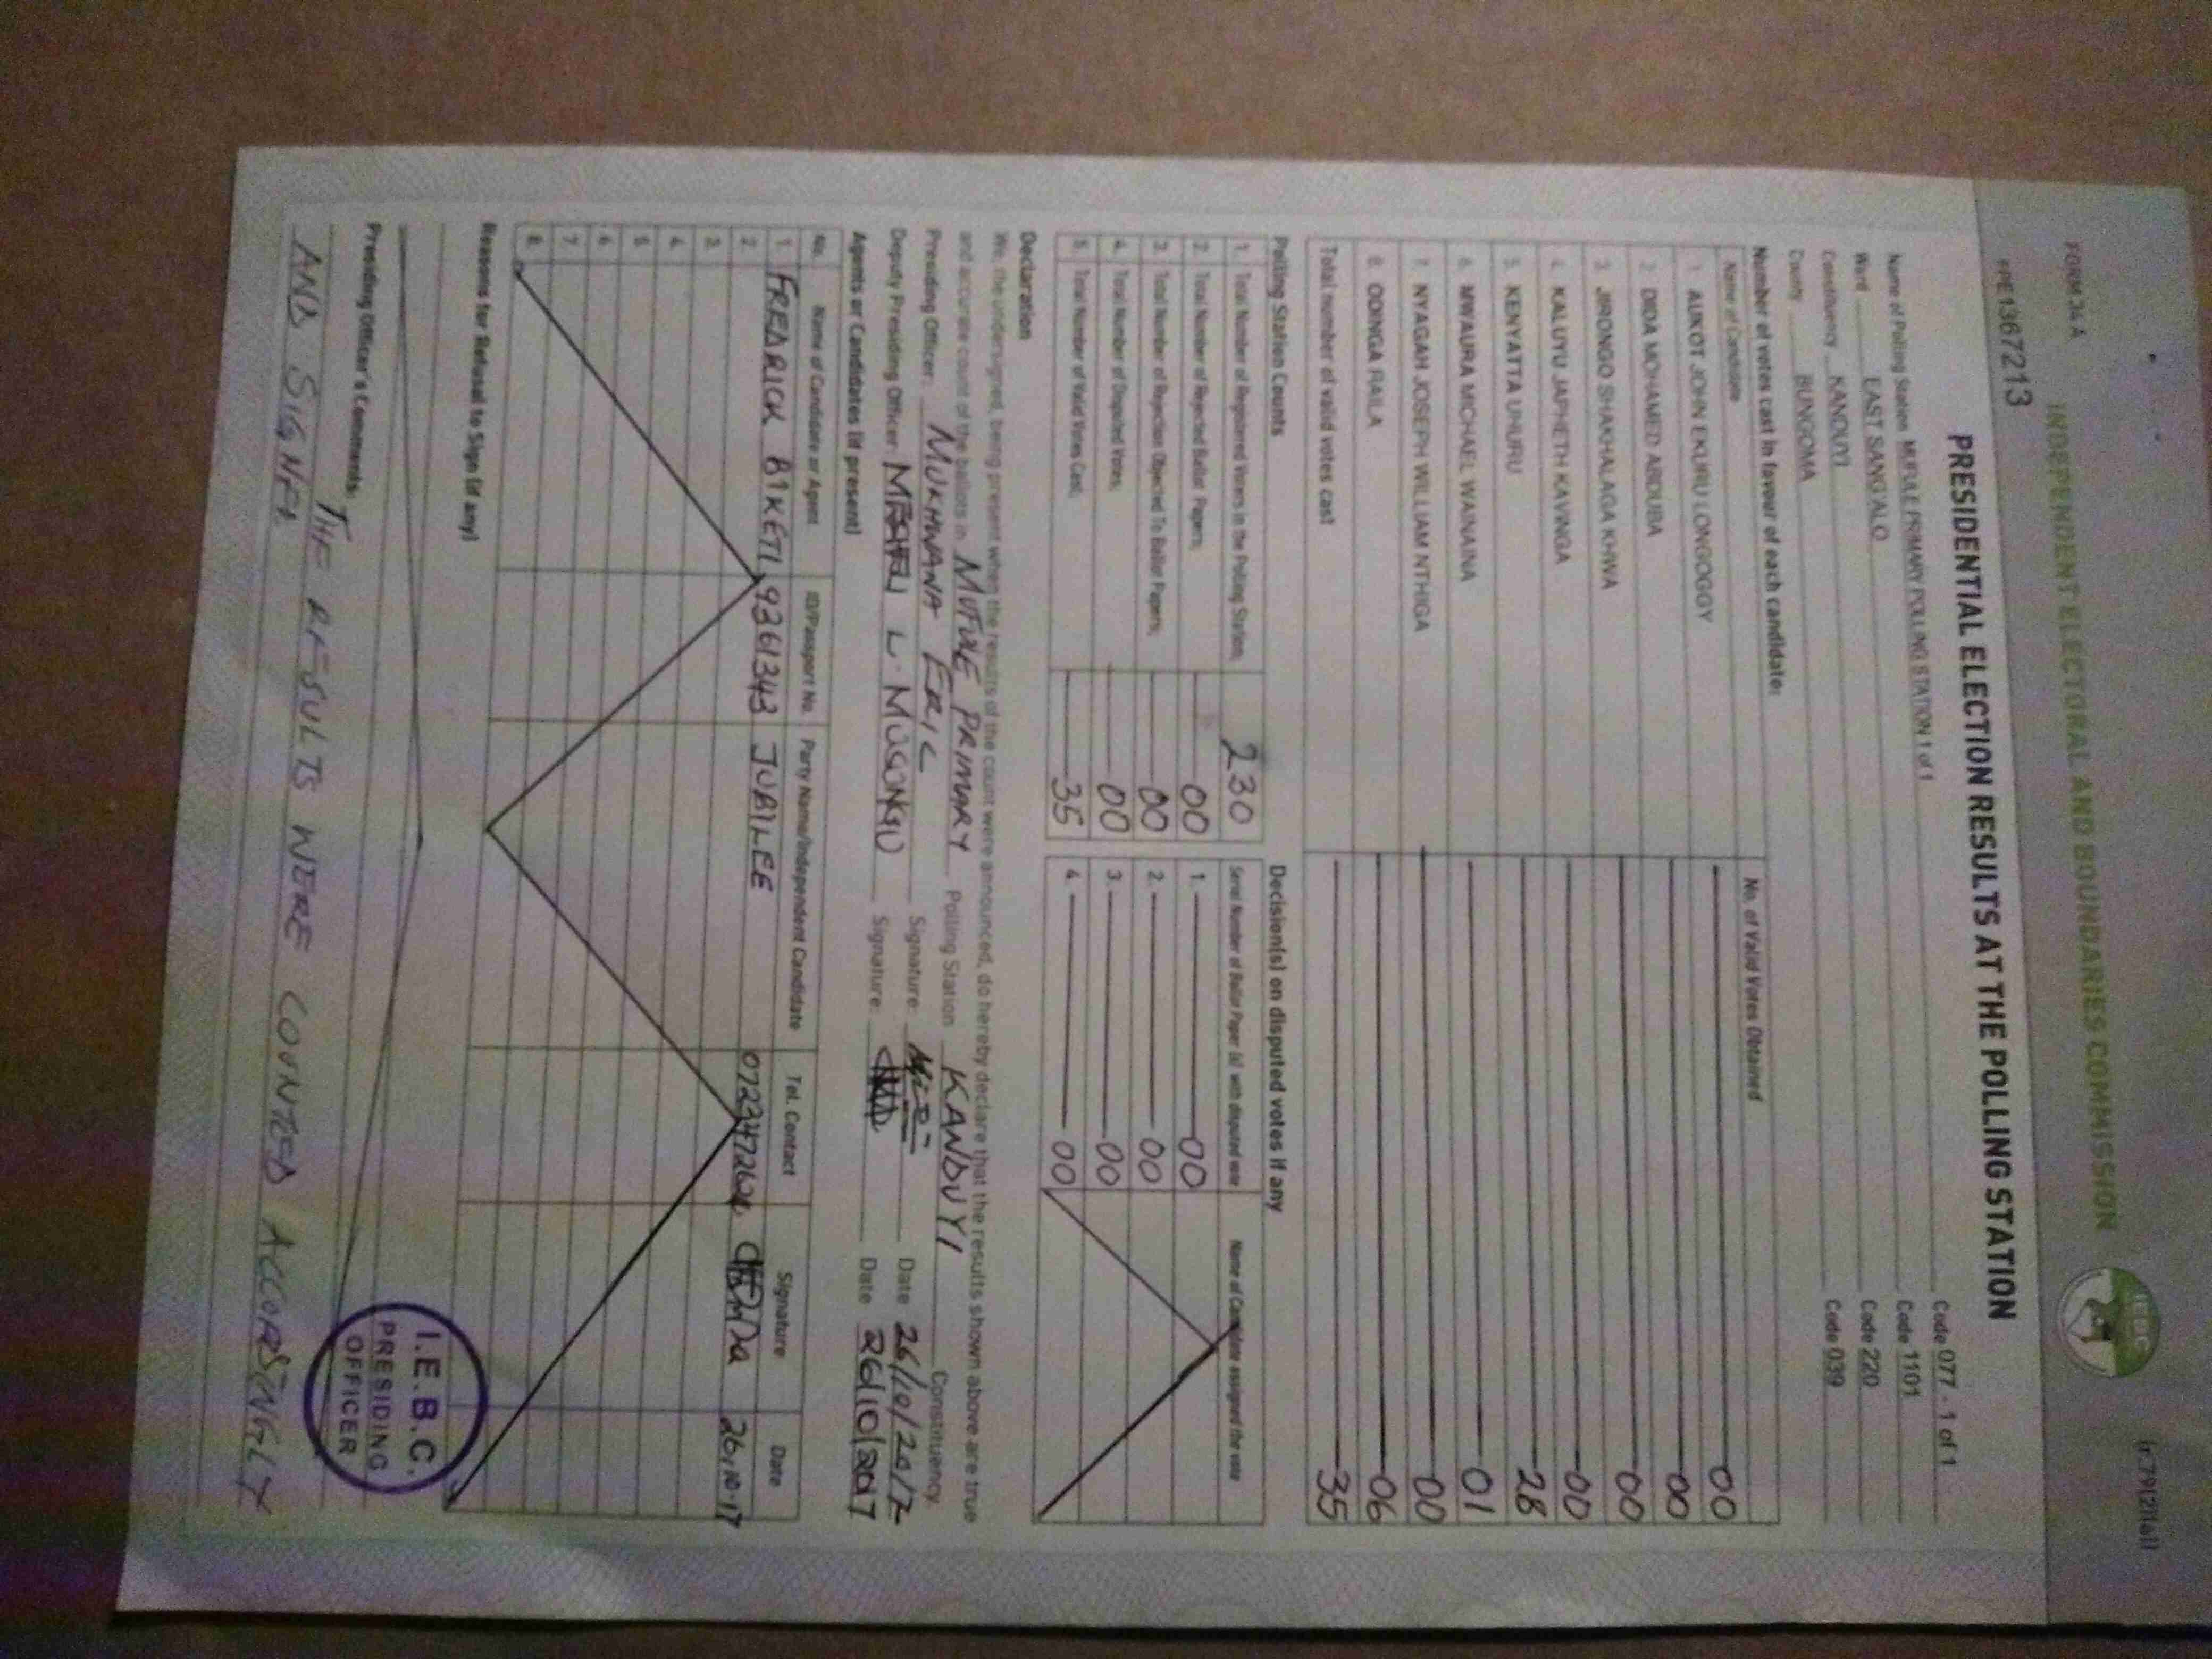 FORM 34 A
INDEPENDENT ELECTORAL AND BOUNDARIES COMMISSION
IEBC
PRESIDENTIAL ELECTION RESULTS AT THE POLLING STATION
Name of Polling Station MUFULE PRIMARY POLLING STATION 1 of 1 Code 077 - 1 of 1
Ward EAST SANG'ALO Code 1101
Constituency KANDUYI Code 220
County BUNGOMA Code 039
Number of votes cast in favour of each candidate:
Name of Candidate No. of Valid Votes Obtained
1. AUKOT JOHN EKURU LONGOGGY 00
2. DIDA MOHAMED ABDUBA 00
3. JIRONGO SHAKHALAGA KHWA 00
4. KALUYU JAPHETH KAVINGA 00
5. KENYATTA UHURU 28
6. MWAURA MICHAEL WAINAINA 01
7. NYAGAH JOSEPH WILLIAM NTHIGA 00
8. ODINGA RAILA 06
Total number of valid votes cast 35
Polling Station Counts
1. Total Number of Registered Voters in the Polling Station; 230
2. Total Number of Rejected Ballot Papers; 00
3. Total Number of Rejection Objected To Ballot Papers; 00
4. Total Number of Disputed Votes; 00
5. Total Number of Valid Votes Cast; 35
Decision(s) on disputed votes if any
Serial Number of Ballot Paper (s) with disputed vote Name of Candidate assigned the vote
1. 00
2. 00
3. 00
4. 00
Declaration
We, the undersigned, being present when the results of the count were announced, do hereby declare that the results shown above are true
and accurate count of the ballots in MUFULE PRIMARY Polling Station KANDUYI Constituency
Presiding Officer: MUKHWANA ERIC Signature: Date 26/10/2017
Deputy Presiding Officer L. Signature: Date 26/10/2017
Agents or Candidates (if present)
No. Name of Candidate or Agent ID/Passport No. Party Name/Independent Candidate Tel. Contact Signature Date
1. FREDRICK BIKETI 9361343 JUBILEE 26.10.17
2.
3.
4.
5.
6.
7.
8.
Reasons for Refusal to Sign (if any)
Presiding Officer's Comments: THE RESULTS WERE COUNTED ACCORDINGLY
AND SIGNED.
I.E.B.C.
PRESIDING
OFFICER